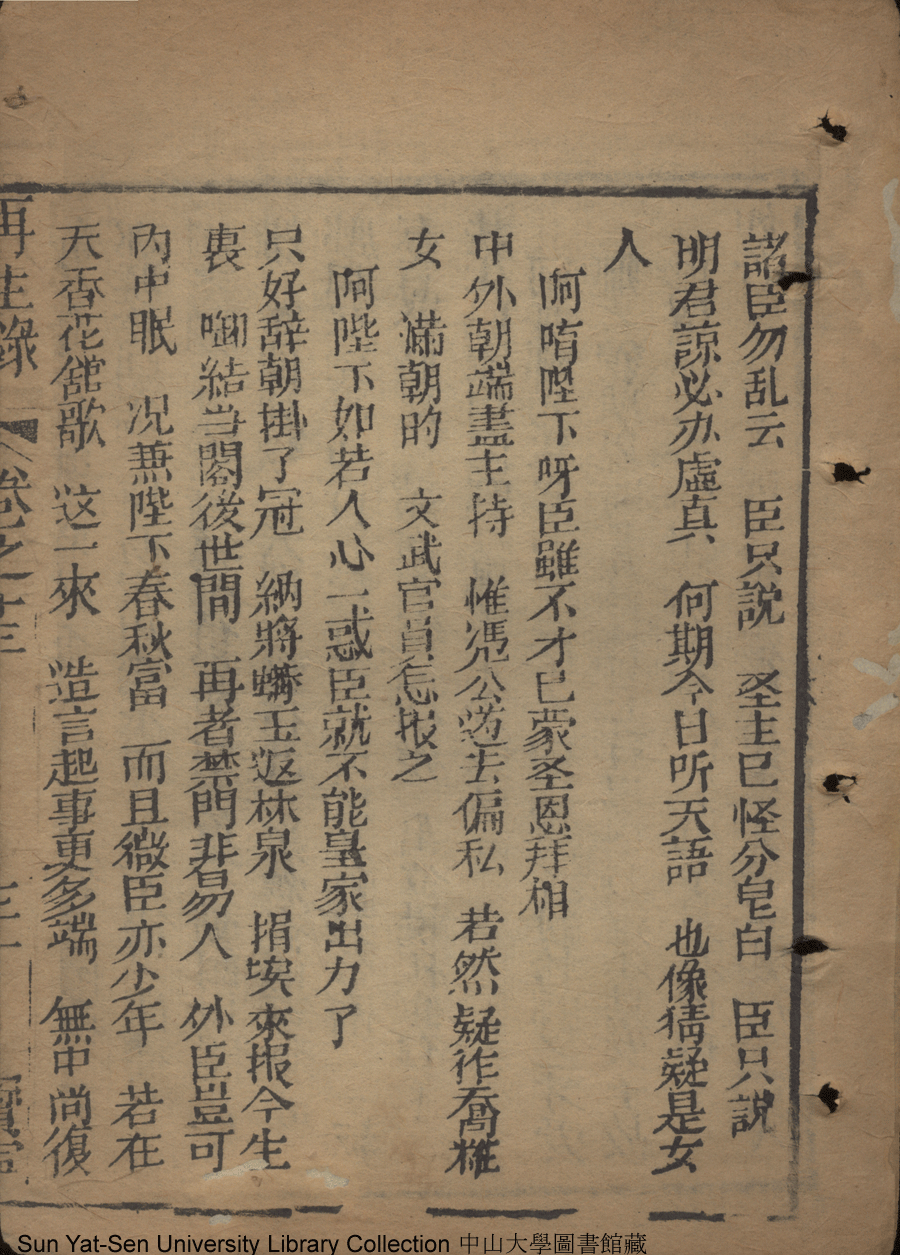 諸臣勿乱云　臣只説　圣主已怪分皂白　臣只説
明君諒必办虚真　何期今日听天語　也像猜疑是女
人
阿唷陛下呀臣雖不才已蒙圣恩拜相
中外朝端盡主持　惟凴公道去偏私　若然疑作喬粧
女　滿朝的　文武官員怎报之
阿陛下如若人心一惑臣就不能皇家出力了
只好辞朝掛了冠　納將蠎玉返林泉　捐埃來报今生
衷　啣結当闍後世間　再者禁門非易人　外臣豈可
内中眠　况兼陛下春秋富　而且微臣亦少年　若在
天香花舘歇　这一來　造言起事更多端　無中尚復
再生緣　卷之十三
Sun Yat-Sen University Library Collection 中山大學圖書館藏